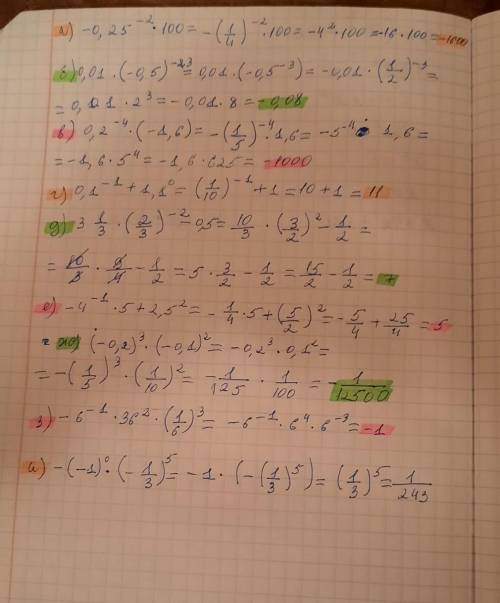 а) -0,25⁻²·100 = -(1/4)⁻²·100 = -4²·100 = -16·100 = -1600
б) 0,01·(-0,5)⁻³ = 0,01·(-0,5⁻³) = -0,01·(1/2)⁻³ =
= 0,01·2³ = -0,01·8 = -0,08
в) 0,2⁻⁴·(-1,6) = -(1/5)⁻⁴·1,6 = -5⁻⁴· 1,6 =
= -1,6·5⁴ = -1,6·625 = -1000
г) 0,1⁻¹ + 1,1⁰ = (1/10)⁻¹ + 1 = 10 + 1 = 11
д) 3 1/3·(2/3)⁻² - 0,5 = 10/3·(3/2)² - 1/2 =
= 10/3·9/4 - 1/2 = 5·3/2 - 1/2 = 15/2 - 1/2 = 7
е) -4⁻¹·5 + 2,5² = -1/4·5 + (5/2)² = -5/4 + 25/4 = 5
ж) (-0,2)³·(-0,1)² = -0,2³·0,1² =
= -(1/5)³·(1/10)² = -1/125·1/100 = -1/12500
з) -6⁻¹·36²·(1/6)³ = -6⁻¹·6⁴·6⁻³ = -1
и) -(-1)⁰·(-1/3)⁵ = -1·(-(1/3)⁵) = (1/3)⁵ = 1/243